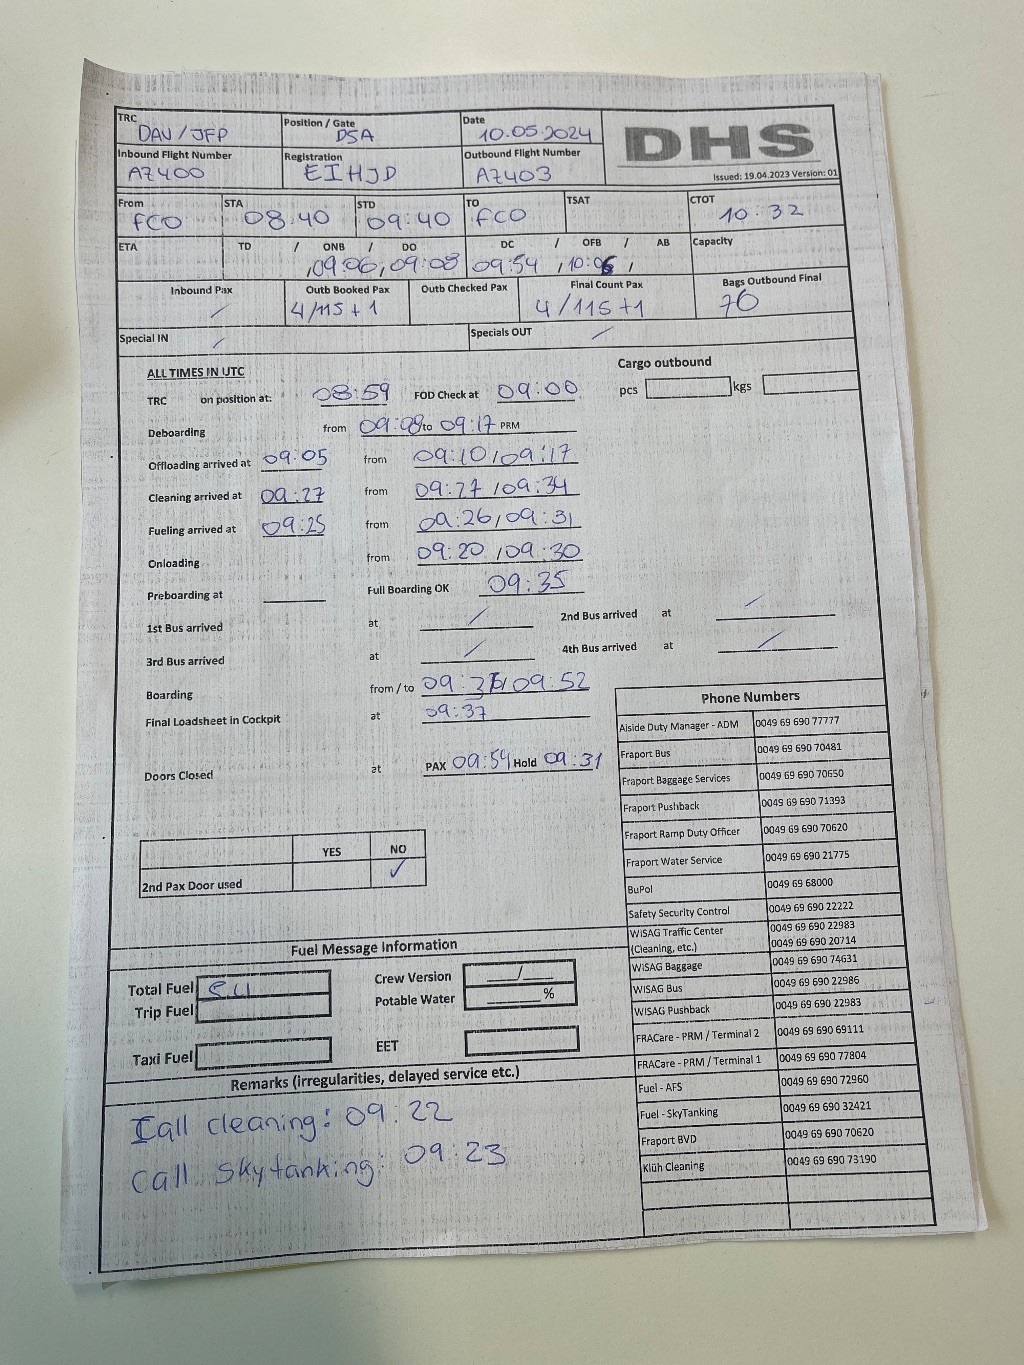 TRC DAV/JFP Position / Gate DSA Date 10.05.2024 DHS
Inbound Flight Number AZ400 Registration EIHJD Outbound Flight Number AZ403 Issued: 19.04.2023 Version: 01
From FCO STA 08:40 STD 09:40 TO FCO TSAT CTOT 10:32
ETA TD / ONB / DO DC / OFB / AB Capacity
,09:06,09:08 09:54 ,10:06 ,
Inbound Pax / Outb Booked Pax 4/115+1 Outb Checked Pax Final Count Pax 4/115+1 Bags Outbound Final 70
Special IN / Specials OUT /
ALL TIMES IN UTC
Cargo outbound
TRC on position at: 08:59 FOD Check at 09:00 pcs kgs
Deboarding from 09:08 to 09:17 PRM
Offloading arrived at 09:05 from 09:10/09:17
Cleaning arrived at 09:27 from 09:27/09:34
Fueling arrived at 09:25 from 09:26/09:31
Onloading from 09:20/09:30
Preboarding at Full Boarding OK 09:35
1st Bus arrived at / 2nd Bus arrived at /
3rd Bus arrived at / 4th Bus arrived at /
Boarding from / to 09:52
Final Loadsheet in Cockpit at 09:37
Doors Closed at PAX 09:54 Hold 09:31
Phone Numbers
Aiside Duty Manager - ADM 0049 69 690 77777
Fraport Bus 0049 69 690 70481
Fraport Baggage Services 0049 69 690 70650
Fraport Pushback 0049 69 690 71393
Fraport Ramp Duty Officer 0049 69 690 70620
Fraport Water Service 0049 69 690 21775
BuPol 0049 69 68000
Safety Security Control 0049 69 690 22222
WISAG Traffic Center 0049 69 690 22983
(Cleaning, etc.) 0049 69 690 20714
WISAG Baggage 0049 69 690 74631
WISAG Bus 0049 69 690 22986
WISAG Pushback 0049 69 690 22983
FRACare - PRM / Terminal 2 0049 69 690 69111
FRACare - PRM / Terminal 1 0049 69 690 77804
Fuel - AFS 0049 69 690 72960
Fuel - SkyTanking 0049 69 690 32421
Fraport BVD 0049 69 690 70620
Klüh Cleaning 0049 69 690 73190
YES NO
2nd Pax Door used ✓
Fuel Message Information
Total Fuel Crew Version /
Trip Fuel Potable Water %
Taxi Fuel EET
Remarks (irregularities, delayed service etc.)
Call cleaning: 09:22
Call Skytanking: 09:23